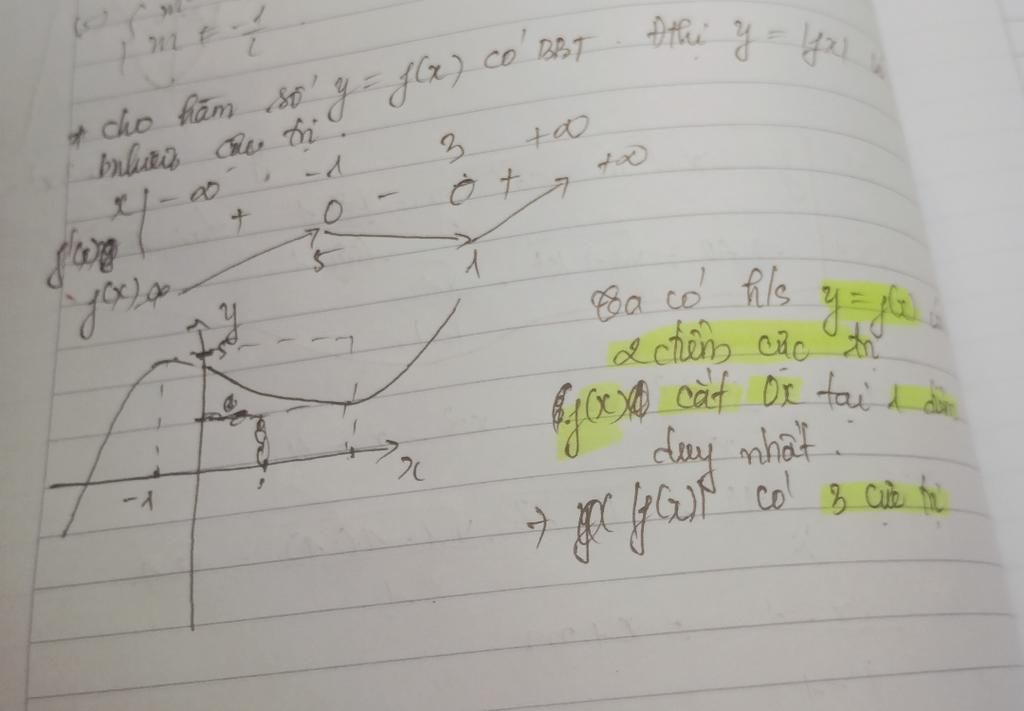 m ≠ -1/2
* cho hàm số y = f(x) có BBT. Đthi y = |f(x)|
bnhiêu cực trị.
x | -∞ -1 3 +∞
f'(x) + 0 - 0 +
f(x) -∞ 5 1 +∞
y
5
-1
x
Ta có h/s y = f(x) có
2 điểm cực trị
f(x) cắt Ox tại 1 điểm
duy nhất.
→ |f(x)| có 3 cực trị